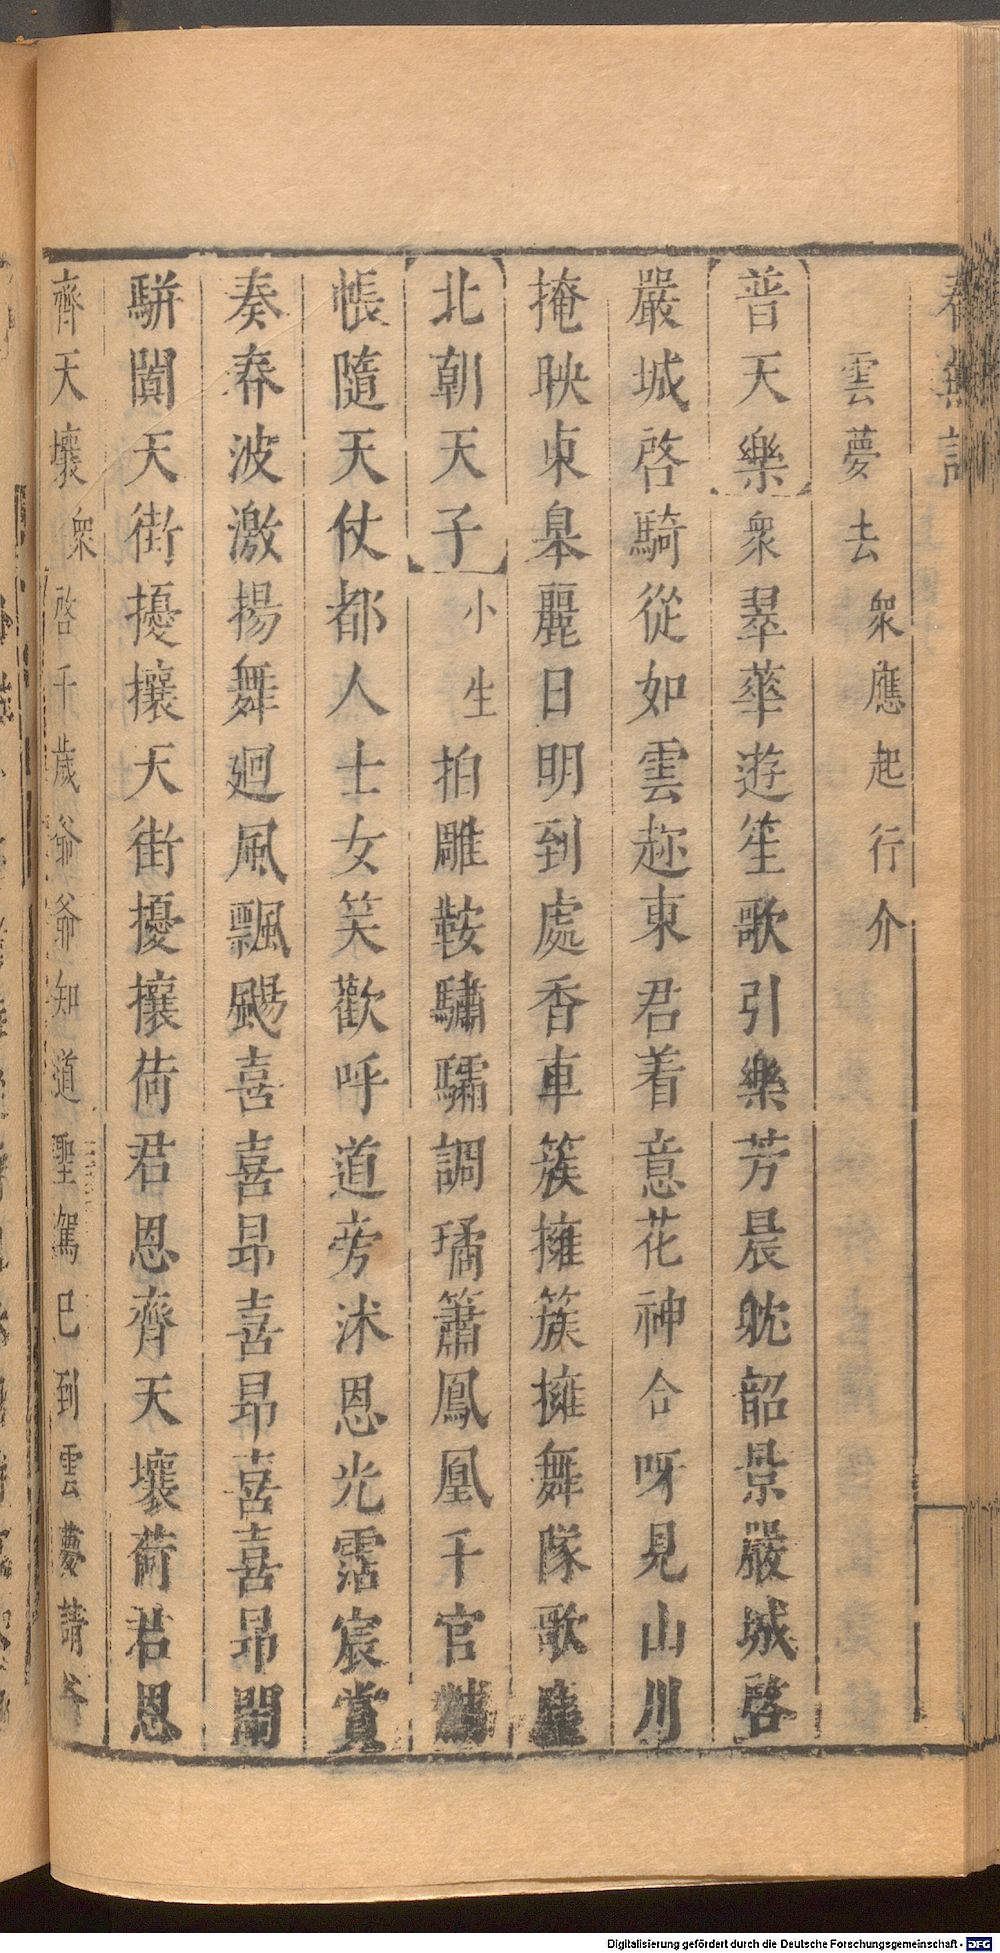 春蕪記
雲夢去衆應起行介
普天樂衆翠華遊笙歌引樂芳晨眈韶景嚴城啓
嚴城啓騎從如雲趂東君着意花神合呀見山川
掩映東臯麗日明到處香車簇擁簇擁舞隊歌塵
北朝天子小生拍雕鞍驌驦調璚簫鳳凰千官
帳隨天仗都人士女笑歡呼道旁沐恩光霑宸賞
奏春波激揚舞廻風飄颺喜喜昂喜昂喜喜昂鬧
駢闐天街擾攘天街擾攘荷君恩齊天壤荷君恩
齊天壤衆啓千歲爺爺知道聖駕已到雲夢請爺
Digitalisierung gefördert durch die Deutsche Forschungsgemeinschaft - DFG